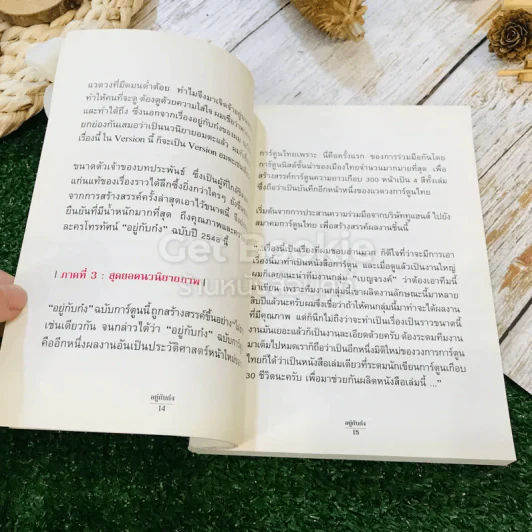 แวดวงที่มืดมนต่ำต้อย ทำไมจึงมาเจิดจ้า
ทำให้คนที่จะดู ต้องดูด้วยความใส่ใจ
และทำได้ถึง ซึ่งนอกจากเรื่องอยู่กับก๋ง
ยกย่องกันเสมอว่าเป็นนวนิยายอมตะแล้ว
เรื่องนี้ ใน Version นี้ ก็จะเป็น Version
ขนาดตัวเจ้าของบทประพันธ์ ซึ่งเป็นผู้ที่ใกล้
แก่นแท้ของเรื่องราวได้ลึกซึ้งยิ่งกว่าใครๆ
จากการสร้างสรรค์ครั้งล่าสุดเอาไว้ขนาดนี้
ยืนยันที่มีน้ำหนักมากที่สุด ถึงคุณภาพและ
ละครโทรทัศน์ "อยู่กับก๋ง" ฉบับปี 2548 นี้
| ภาคที่ 3 : สุดยอดนวนิยายภาพ |
"อยู่กับก๋ง" ฉบับการ์ตูนนี้ถูกสร้างสรรค์ขึ้นอย่าง
เช่นเดียวกัน จนกล่าวได้ว่า "อยู่กับก๋ง" ฉบับการ์ตูน
คืออีกหนึ่งผลงานอันเป็นประวัติศาสตร์หน้าใหม่ของ
อยู่กับก๋ง
14
การ์ตูนไทยเพราะ นี่คือครั้งแรก ของการร่วมมือกันโดย
การ์ตูนนิสต์ชั้นนำของเมืองไทยจำนวนมากมายที่สุด เพื่อ
สร้างสรรค์การ์ตูนความยาวเกือบ 300 หน้าเป็น 4 สีทั้งเล่ม
ซึ่งถือว่าเป็นบันทึกอีกหน้าหนึ่งของแวดวงการ์ตูนไทย
เริ่มต้นจากการประสานความร่วมมือจากบริษัททูแฮนส์ ไปยัง
สมาคมการ์ตูนไทย เพื่อสร้างสรรค์ผลงานชิ้นนี้
"...เรื่องนี้เป็นเรื่องที่ผมชอบอ่านมาก ก็ดีใจที่ว่าจะมีการเอา
เรื่องนี้มาทำเป็นหนังสือการ์ตูน และเมื่อดูแล้วเป็นงานใหญ่
ผมก็เลยแนะนำที่ทีมงานกลุ่ม "เบญจรงค์" ว่าต้องเอาทีมนี้
มาเขียน เพราะทีมงานกลุ่มนี้เขาเขียนผลงานลักษณะนี้มาหลาย
สิบปีแล้วนะครับผมจึงเชื่อว่าถ้าให้คนกลุ่มนี้มาทำจะเป็นงานที่
มีคุณภาพ แต่ก็นึกไม่ถึงว่าจะทำเป็นเรื่องเป็นราวขนาดนี้
งานมันเยอะแล้วก็เป็นงานละเอียดด้วยครับ ต้องระดมทีมงาน
มาเต็มไปหมดเราก็ถือว่าเป็นอีกหนึ่งมิติใหม่ของวงการการ์ตูน
ไทยก็ได้ว่าเป็นหนังสือเล่มเดียวที่ระดมนักเขียนการ์ตูนเกือบ
30 ชีวิตนะครับ เพื่อมาช่วยกันผลิตหนังสือเล่มนี้ ..."
อยู่กับก๋ง
15
Get Bookie